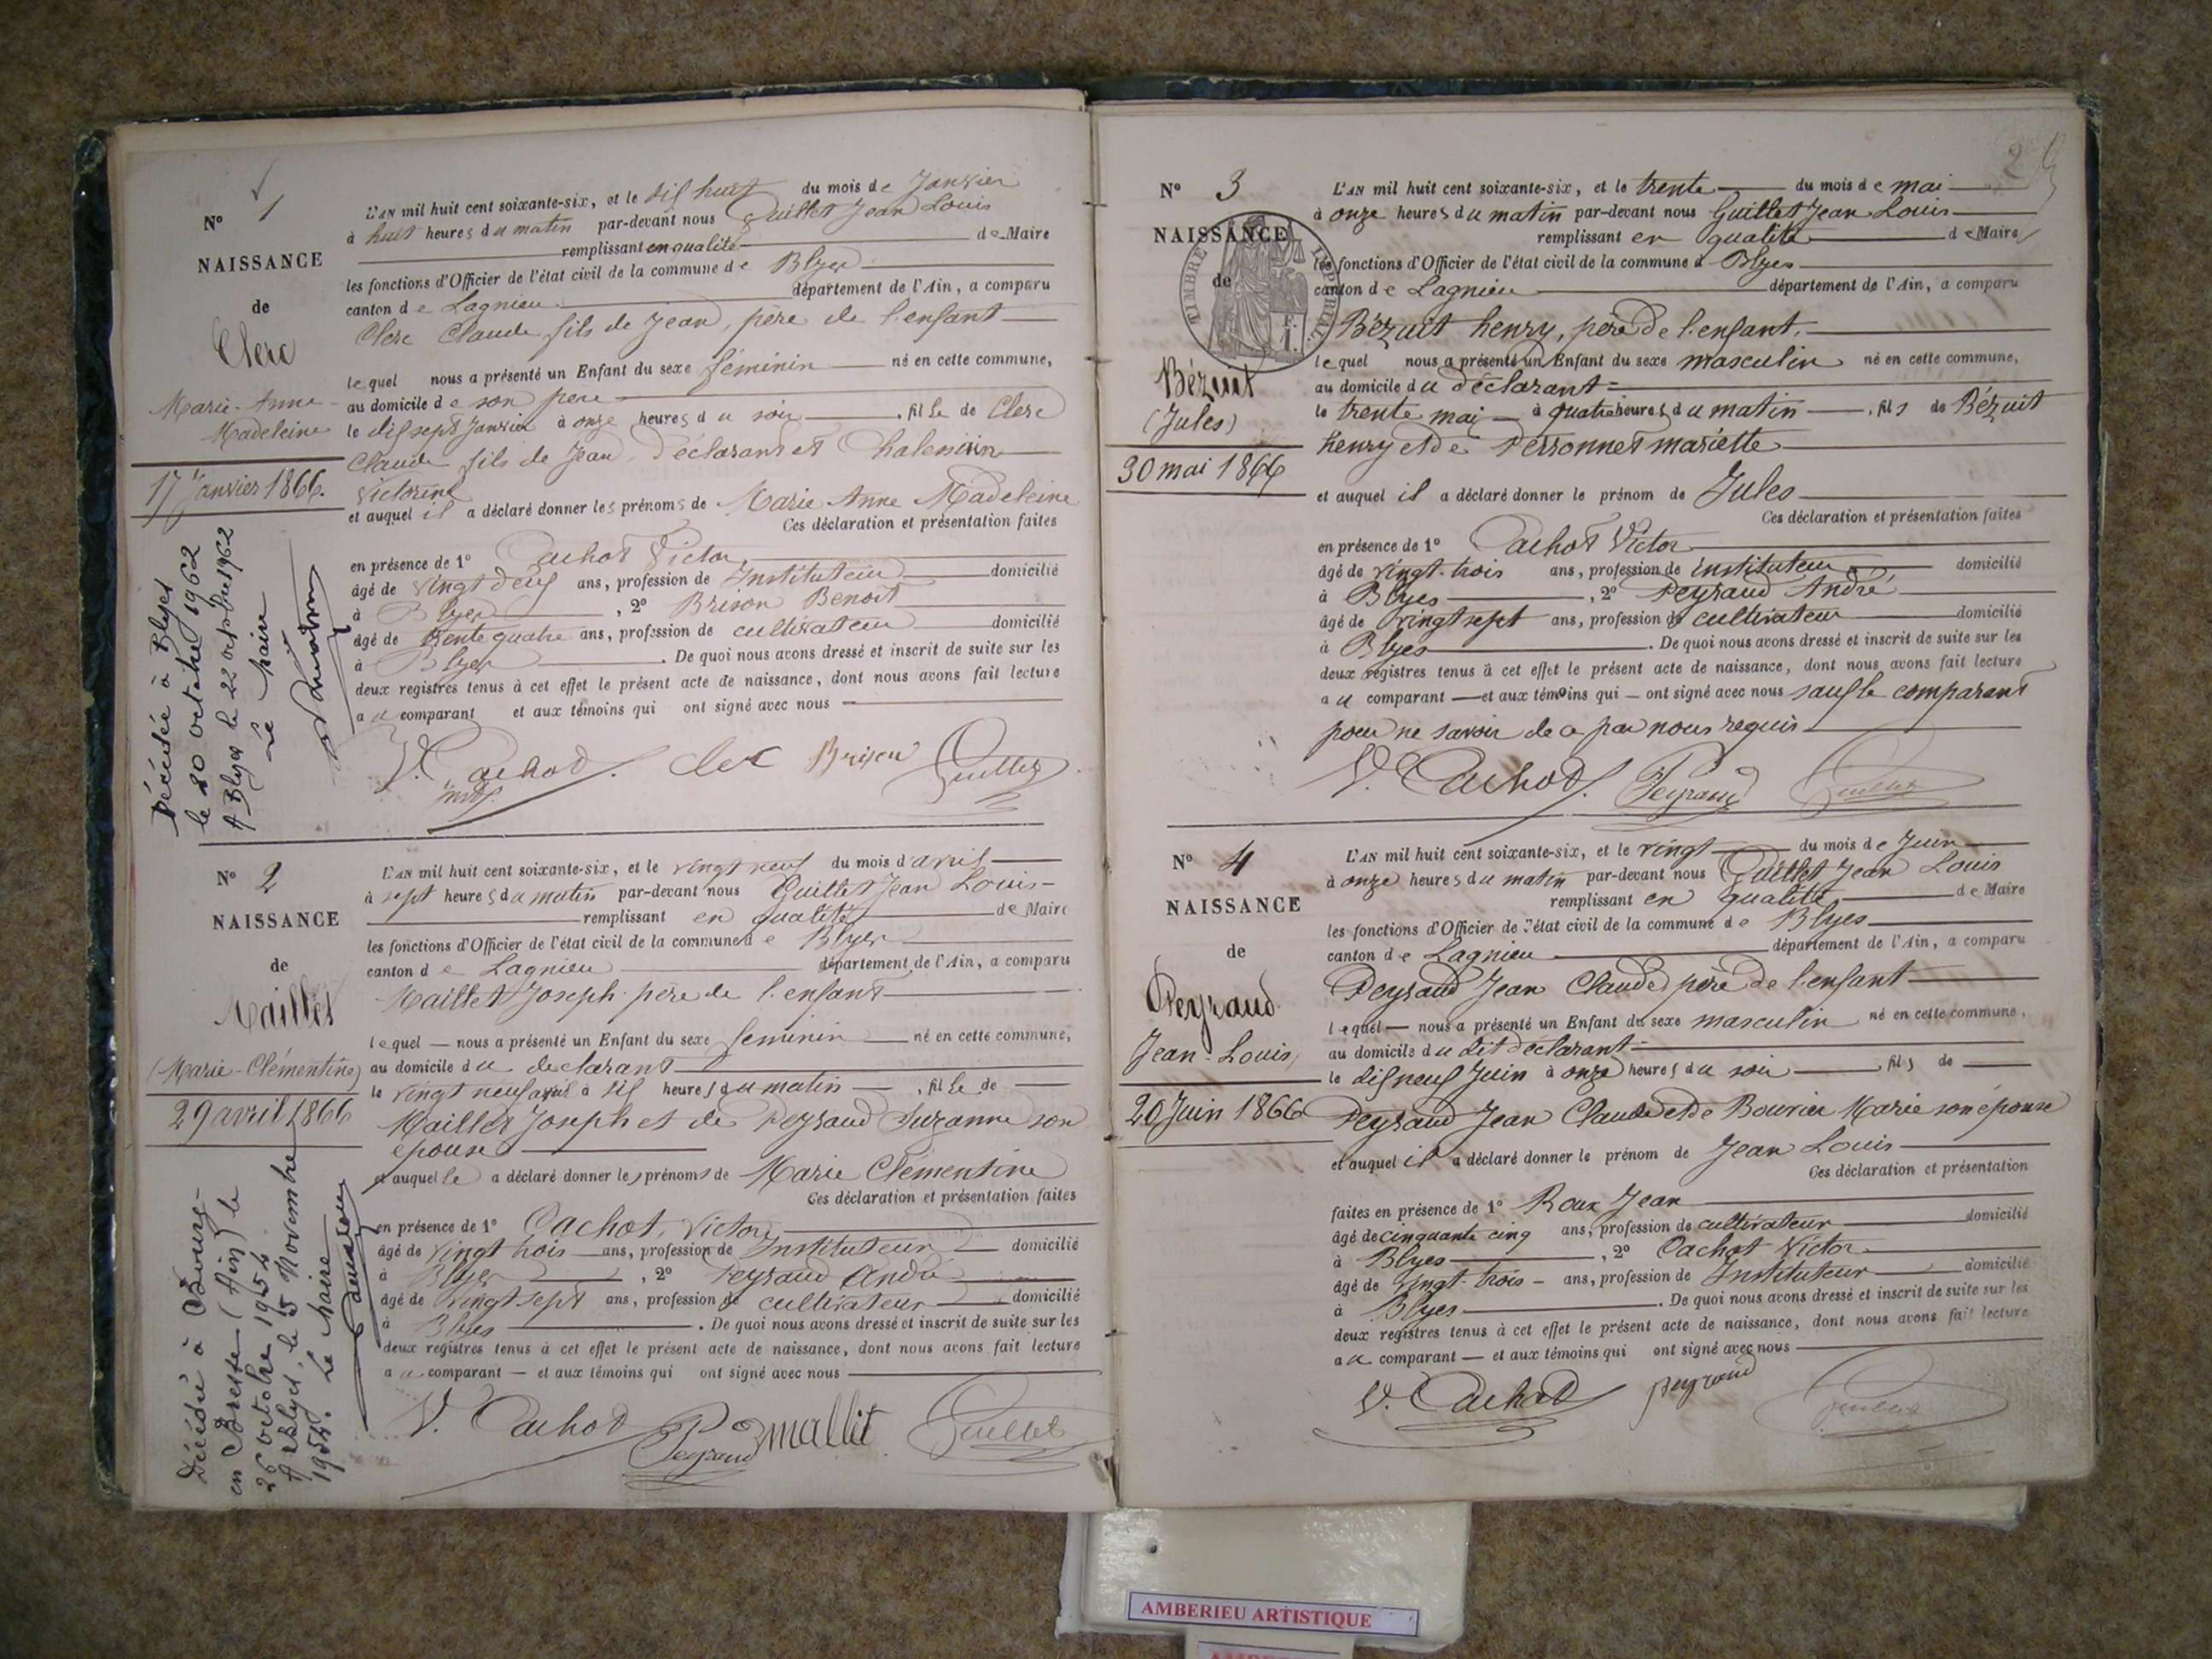 N° 1
NAISSANCE
de
Clerc
Marie-Anne
Madeleine
17 Janvier 1866.
Décédée à Blyes
le 20 octobre 1962
A Blyes le 22 octobre 1962
Le Maire
L'AN mil huit cent soixante-six, et le dix huit du mois de Janvier
à huit heures du matin par-devant nous Guillet Jean Louis
remplissant en qualité de Maire
les fonctions d'Officier de l'état civil de la commune de Blyes
canton de Lagnieu département de l'Ain, a comparu
Clerc Claude fils de Jean, père de l'enfant
lequel nous a présenté un Enfant du sexe féminin né en cette commune,
au domicile de son père
le dix sept Janvier à onze heures du soir, fille de Clerc
Claude fils de Jean, déclarant et
Victorine
et auquel il a déclaré donner les prénoms de Marie Anne Madeleine
Ces déclaration et présentation faites
en présence de 1° Cachot Victor
âgé de vingt deux ans, profession de Instituteur domicilié
à Blyes, 2° Brison Benoit
âgé de trente quatre ans, profession de cultivateur domicilié
à Blyes. De quoi nous avons dressé et inscrit de suite sur les
deux registres tenus à cet effet le présent acte de naissance, dont nous avons fait lecture
au comparant et aux témoins qui ont signé avec nous
V. Cachot. Clerc Brison Guillet
Instr.
N° 2
NAISSANCE
de
Maillet
(Marie-Clémentine)
29 avril 1866
Décédée à Bourg-
en Bresse (Ain) le
26 octobre 1954
A Blyes, le 5 Novembre
1954. Le Maire
L'AN mil huit cent soixante-six, et le vingt neuf du mois d'avril
à sept heures du matin par-devant nous Guillet Jean Louis
remplissant en qualité de Maire
les fonctions d'Officier de l'état civil de la commune de Blyes
canton de Lagnieu département de l'Ain, a comparu
Maillet Joseph père de l'enfant
lequel nous a présenté un Enfant du sexe féminin né en cette commune,
au domicile du déclarant
le vingt neuf avril à six heures du matin, fille de
Maillet Joseph et de Peyraud Suzanne son
épouse
et auquelle a déclaré donner les prénoms de Marie Clémentine
Ces déclaration et présentation faites
en présence de 1° Cachot, Victor
âgé de vingt trois ans, profession de Instituteur domicilié
à Blyes, 2° Peyraud André
âgé de vingt sept ans, profession de cultivateur domicilié
à Blyes. De quoi nous avons dressé et inscrit de suite sur les
deux registres tenus à cet effet le présent acte de naissance, dont nous avons fait lecture
au comparant et aux témoins qui ont signé avec nous
V. Cachot Peyraud mallit Guillet
2
N° 3
NAISSANCE
de
TIMBRE IMPERIAL
Bézuit
(Jules)
30 mai 1866
L'AN mil huit cent soixante-six, et le trente du mois de mai
à onze heures du matin par-devant nous Guillet Jean Louis
remplissant en qualité de Maire
les fonctions d'Officier de l'état civil de la commune d Blyes
canton de Lagnieu département de l'Ain, a comparu
Bézuit henry, père de l'enfant.
lequel nous a présenté un Enfant du sexe masculin né en cette commune,
au domicile du déclarant
le trente mai à quatre heures du matin, fils de Bézuit
henry et de Perronnet mariette
et auquel il a déclaré donner le prénom de Jules
Ces déclaration et présentation faites
en présence de 1° Cachot Victor
âgé de vingt-trois ans, profession de instituteur domicilié
à Blyes, 2° Peyraud André
âgé de vingt sept ans, profession de cultivateur domicilié
à Blyes. De quoi nous avons dressé et inscrit de suite sur les
deux registres tenus à cet effet le présent acte de naissance, dont nous avons fait lecture
au comparant et aux témoins qui ont signé avec nous sauf le comparant
pour ne savoir de ce par nous requis
V. Cachot. Peyraud Guillet
N° 4
NAISSANCE
de
Peyraud
Jean-Louis
20 Juin 1866
L'AN mil huit cent soixante-six, et le vingt du mois de Juin
à onze heures du matin par-devant nous Guillet Jean Louis
remplissant en qualité de Maire
les fonctions d'Officier de l'état civil de la commune de Blyes
canton de Lagnieu département de l'Ain, a comparu
Peyraud Jean Claude père de l'enfant
lequel nous a présenté un Enfant du sexe masculin né en cette commune,
au domicile du dit déclarant
le dix neuf Juin à onze heures du soir fils de
Peyraud Jean Claude et de Bouvier Marie son épouse
et auquel il a déclaré donner le prénom de Jean Louis
Ces déclaration et présentation
faites en présence de 1° Roux Jean
âgé de cinquante cinq ans, profession de cultivateur domicilié
à Blyes, 2° Cachot Victor
âgé de vingt-trois ans, profession de Instituteur domicilié
à Blyes. De quoi nous avons dressé et inscrit de suite sur les
deux registres tenus à cet effet le présent acte de naissance, dont nous avons fait lecture
au comparant et aux témoins qui ont signé avec nous
V. Cachot peyraud Guillet
AMBERIEU ARTISTIQUE